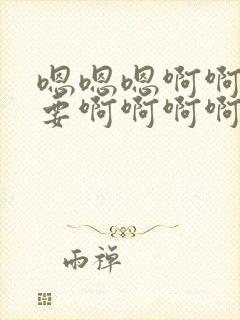 嗯嗯嗯啊啊
要啊啊啊啊
雨禅